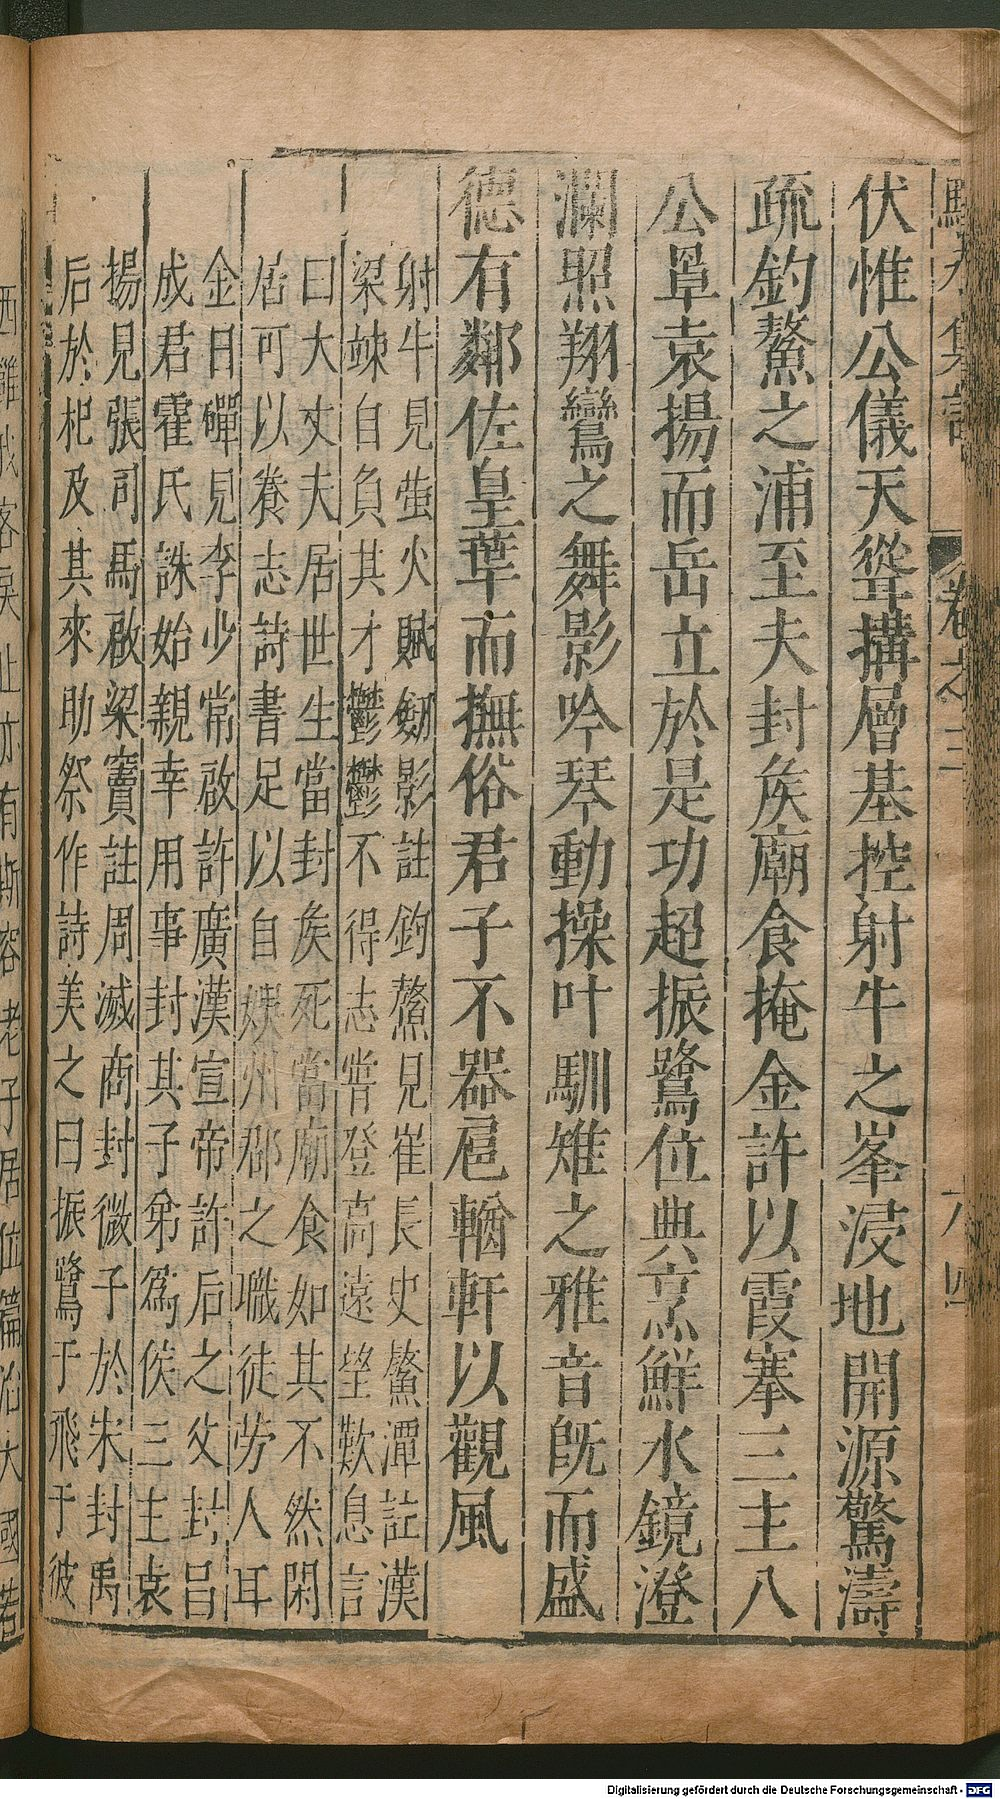 伏惟公儀天聳搆層基控射牛之峯浸地開源驚濤
疏釣鰲之浦至夫封矦廟食掩金許以霞搴三主八
公罩袁揚而岳立於是功超振鷺位典烹鮮水鏡澄
瀾照翔鸞之舞影吟琴動操叶馴雉之雅音旣而盛
德有鄰佐皇華而撫俗君子不器扈輶軒以觀風
射牛見螢火賦劔影註鉤鰲見崔長史鰲潭註漢
梁竦自負其才鬱鬱不得志嘗登高遠望歎息言
曰大丈夫居世生當封矦死當廟食如其不然閑
居可以養志詩書足以自娛州郡之職徒勞人耳
金日磾見李少常啟許廣漢宣帝許后之父封昌
成君霍氏誅始親幸用事封其子弟爲侯三主袁
揚見張司馬啟梁竇註周滅商封微子於宋封禹
后於杞及其來助祭作詩美之曰振鷺于飛于彼
卷之三
Digitalisierung gefördert durch die Deutsche Forschungsgemeinschaft - DFG